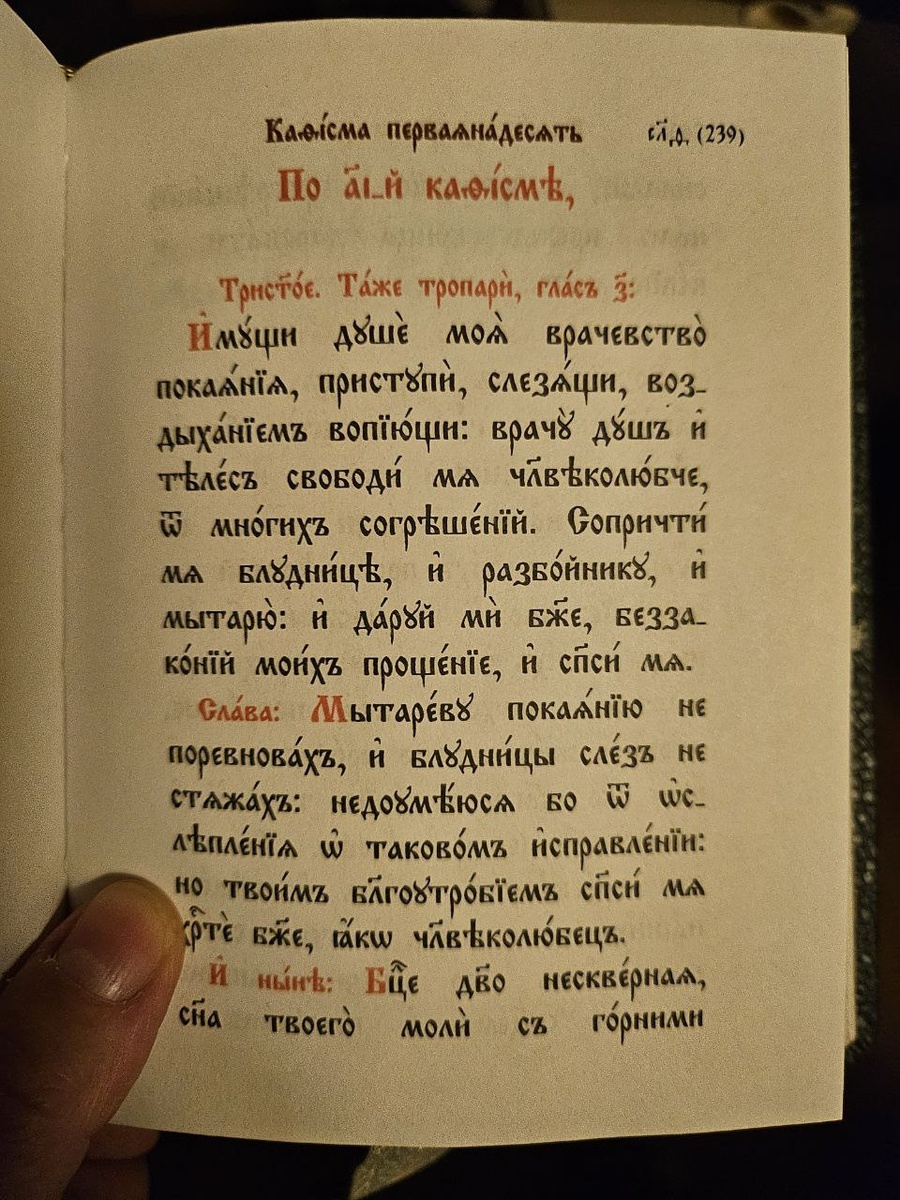 Каѳі́сма перваѧна́десѧть сл҃д. (239)
По а҃і_й каѳі́смѣ,
Трист҃о́е. Та́же тропарѝ, гла́съ з҃:
И҆мꙋ́щи дꙋшѐ моѧ̀ врачевство̀
покаѧ́нїѧ, пристꙋпѝ, слезѧ́щи, воз_
дыха́нїемъ вопїю́щи: врачꙋ̀ дꙋ́шъ и҆
тѣле́съ свободи́ мѧ чл҃вѣколю́бче,
ѿ мно́гихъ согрѣше́нїй. Сопричти́
мѧ блꙋдни́цѣ, и҆ разбо́йникꙋ, и҆
мытарю̀: и҆ да́рꙋй мѝ бж҃е, безза_
ко́нїй мои́хъ проще́нїе, и҆ сп҃си́ мѧ.
Сла́ва: Мытаре́вꙋ покаѧ́нїю не
поревнова́хъ, и҆ блꙋдни́цы сле́зъ не
стѧжа́хъ: недоꙋмѣ́юсѧ бо ѿ ѡ҆с_
лѣпле́нїѧ ѡ҆ таково́мъ и҆справле́нїи:
но твои́мъ бл҃гоꙋтро́бїемъ сп҃си́ мѧ
хрⷭ҇тѐ бж҃е, ꙗ҆́кѡ чл҃вѣколю́бецъ.
И҆ ны́нѣ: Бцⷣе дв҃о нескве́рнаѧ,
сн҃а твоего̀ молѝ съ го́рними